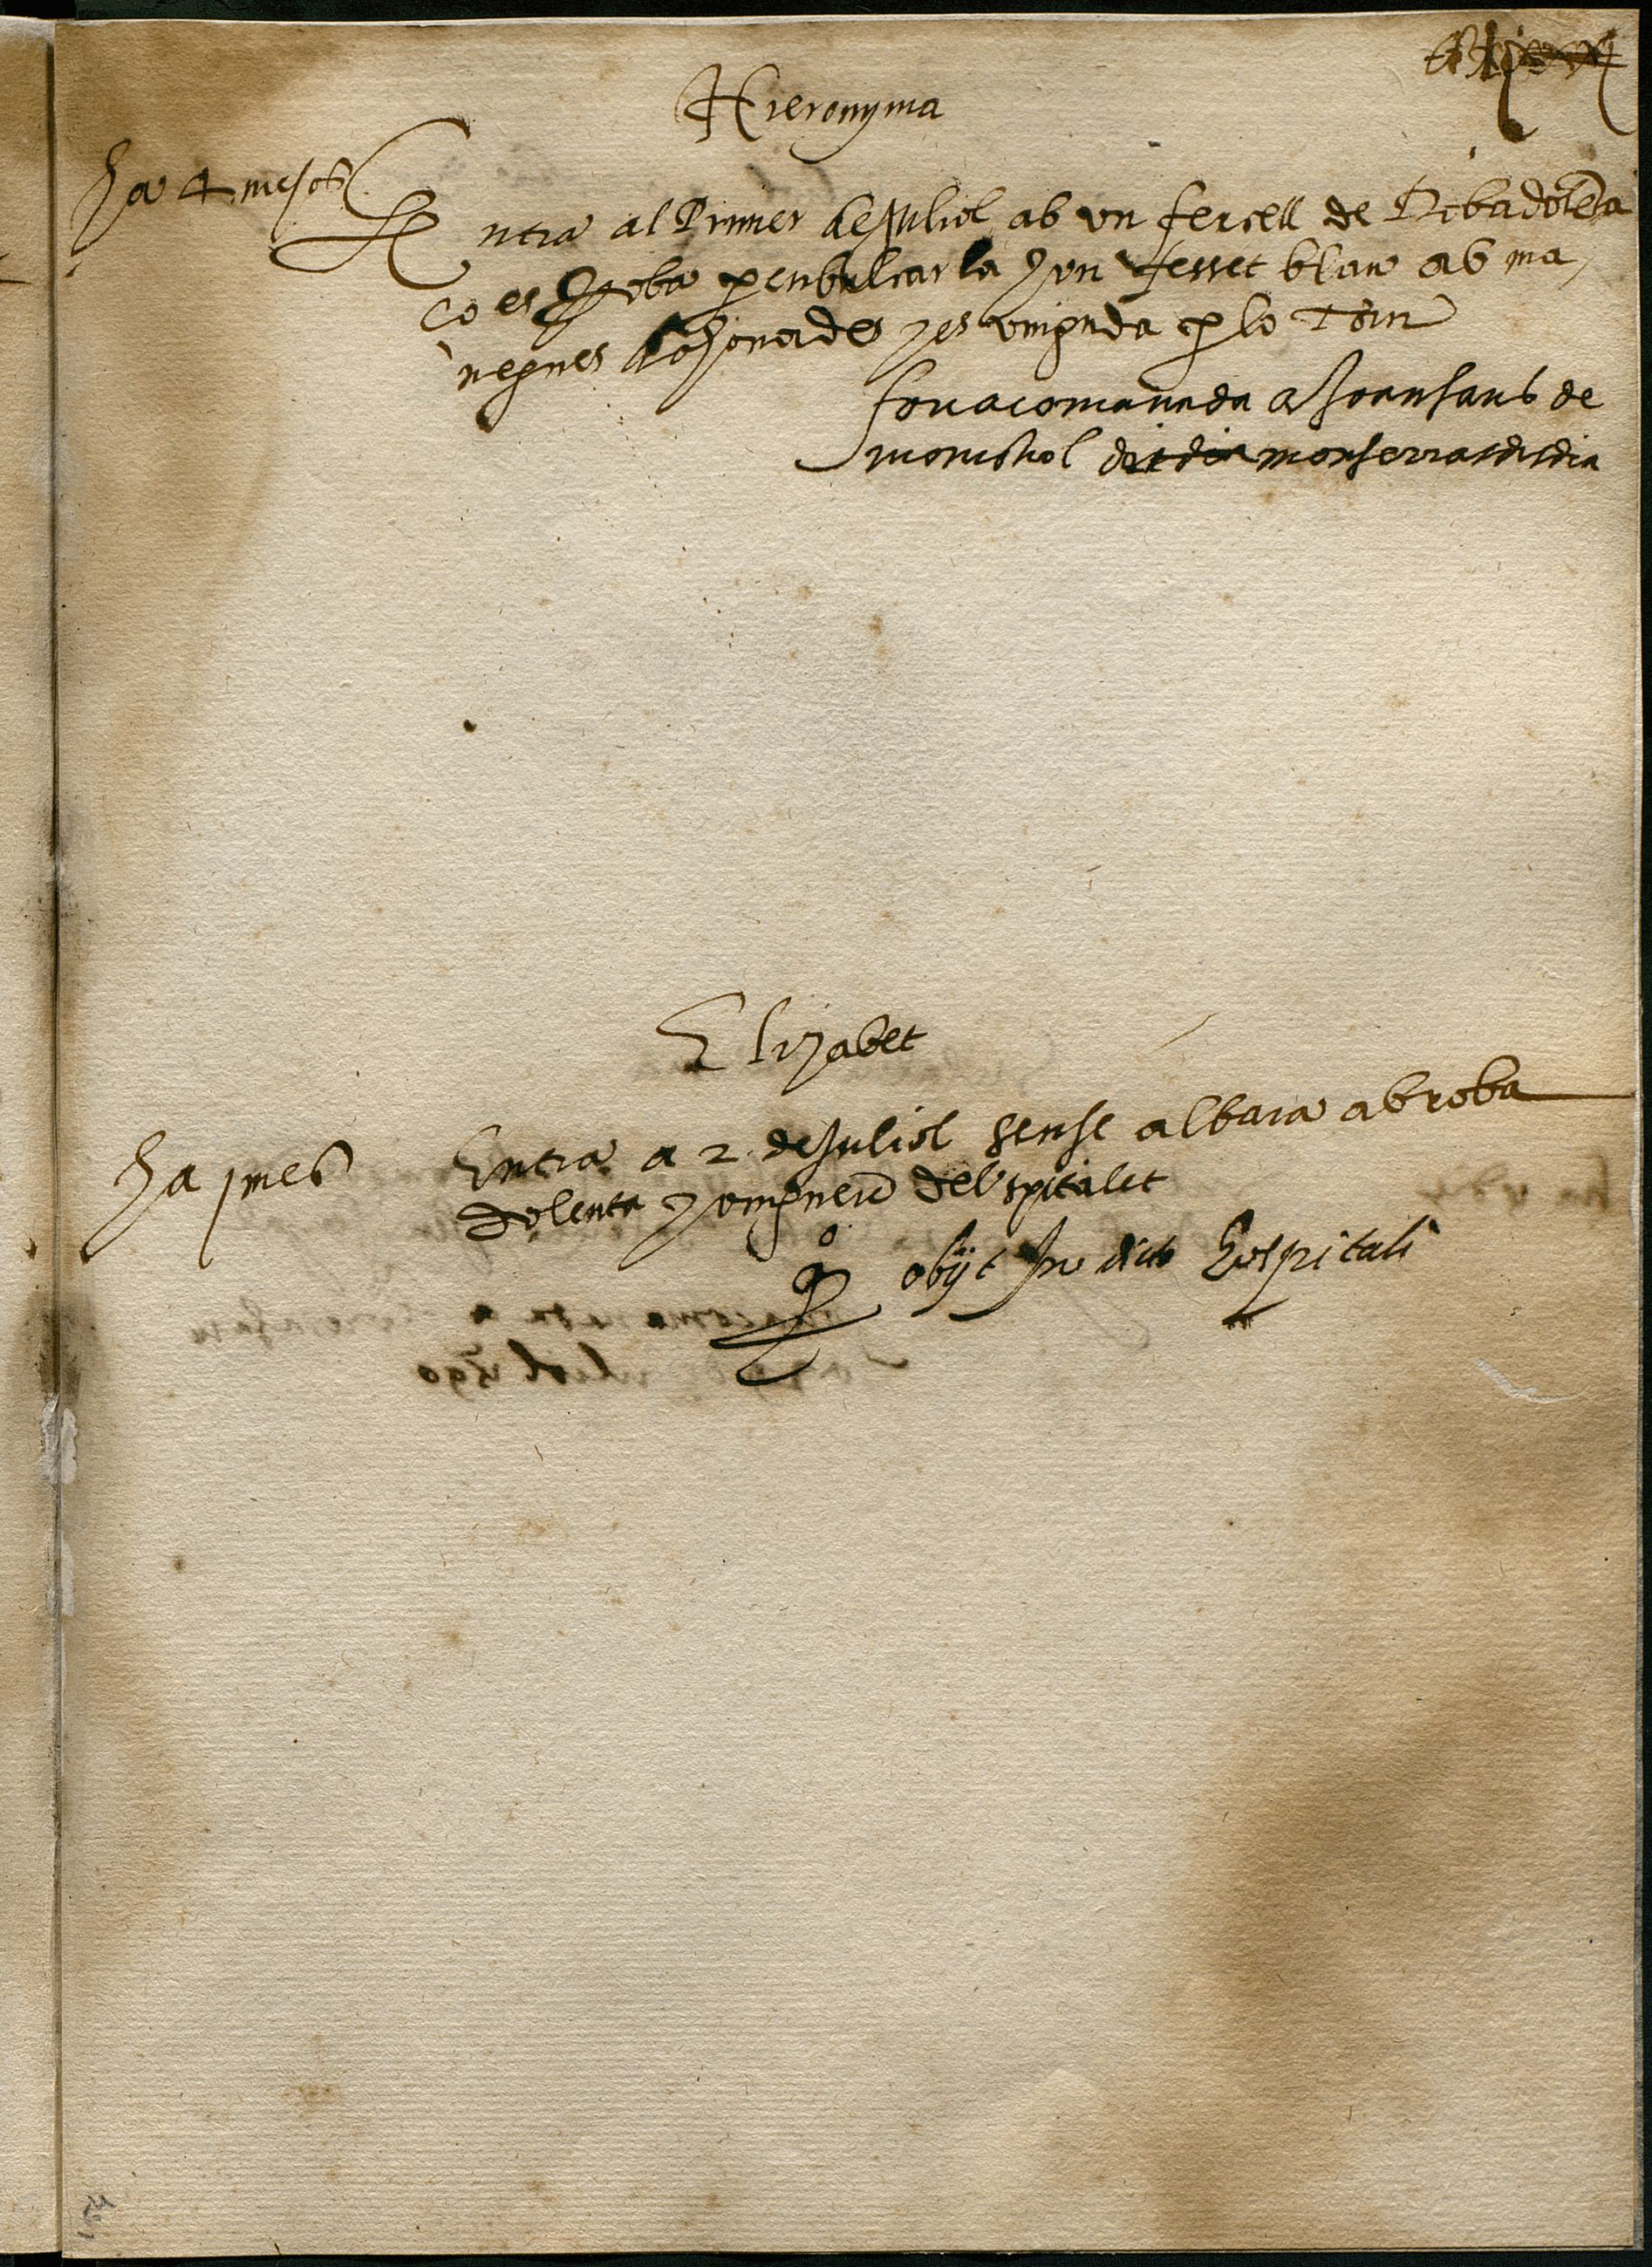 Hieronyma
ha 4 mesos
Entra al Primer de Juliol ab un fercell de Robadolenta
ço es Roba p enbulcarla y un fesset blau ab ma,
negues y es vinguda p lo Torn
fou acomanada a Joan sans de
monistrol dit dia monserrat dit dia
Elizabet
ha j mes
Entra a 2 de Juliol sense albara ab roba
dolenta y vingue del spitalet
obijt In dicto hospitali